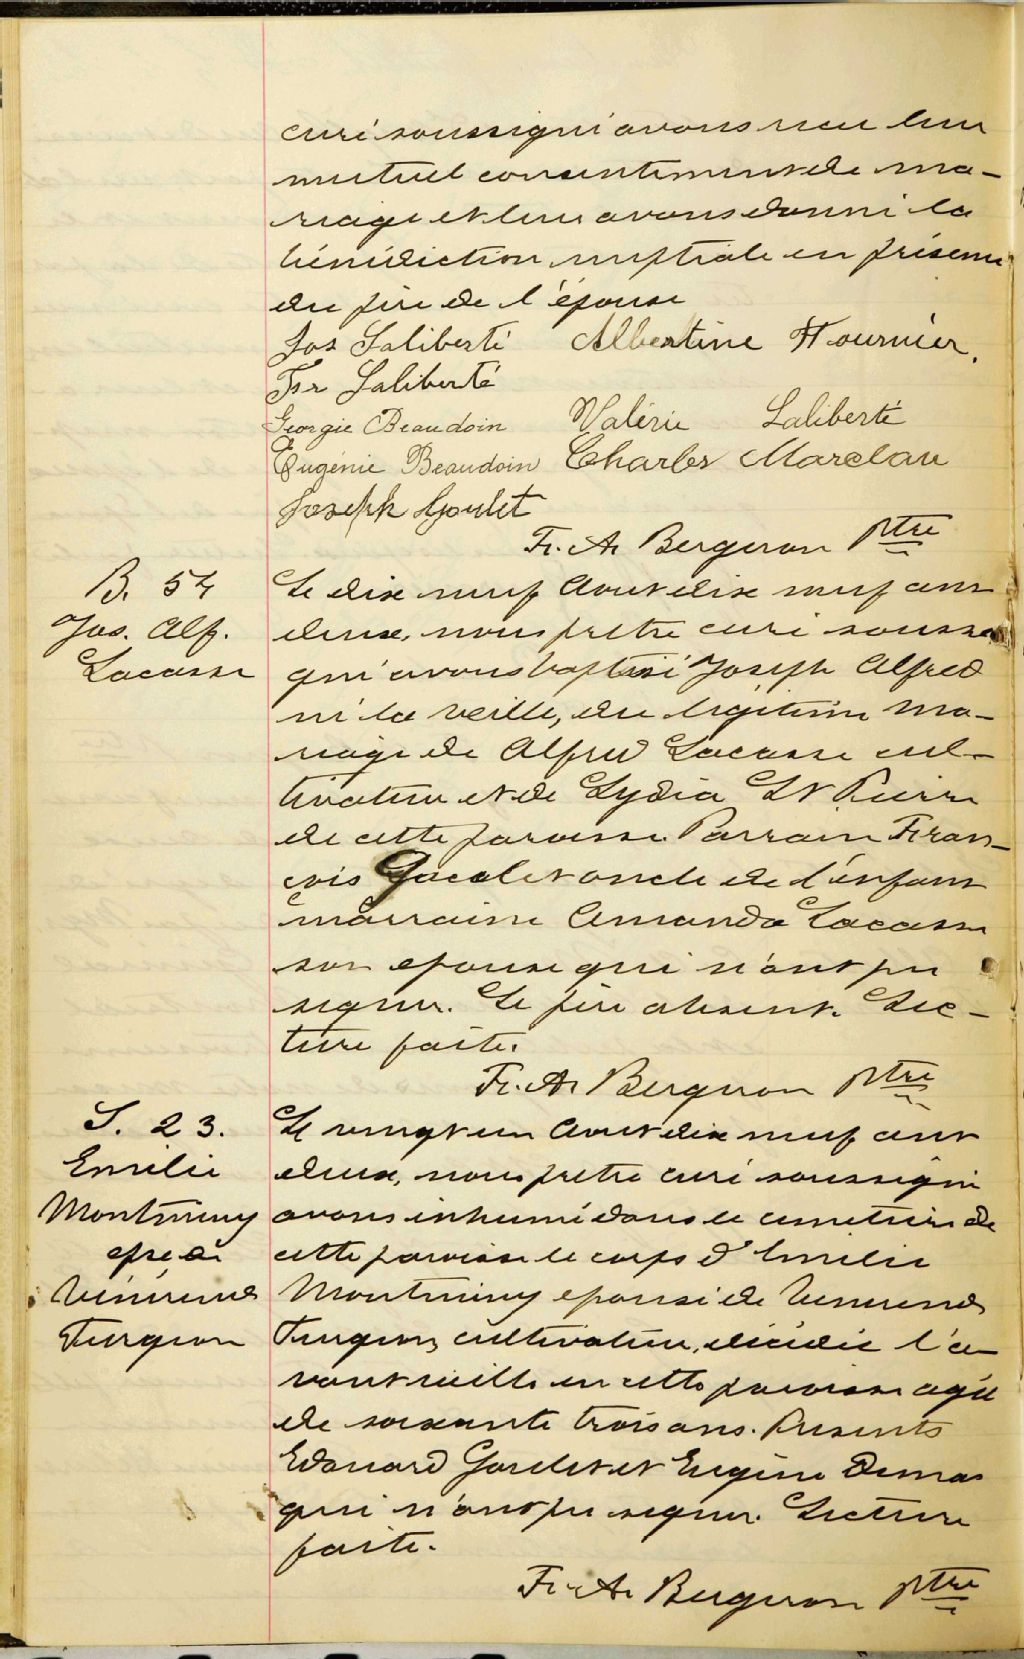 curé soussigné avons reçu leur
mutuel consentement de ma-
riage et leur avons donné la
bénédiction nuptiale en présence
du père de l'épouse
Jos Laliberté Albertine Fournier.
Fsr Laliberté
Georgie Beaudoin Valérie Laliberté
Eugénie Beaudoin Charles Marcleau
Joseph Goulet
Fr. A. Bergeron Ptre
B. 54
Jos. Alf.
Lacasse
Le dix neuf Aout dix neuf cent
deux, nous pretre curé soussi
gné avons baptisé Joseph Alfred
né la veille, du légitime ma-
riage de Alfred Lacasse cul-
tivateur et de Lydia St Pierre
de cette paroisse. Parrain Fran-
çois Goulet oncle de l'enfant
marraine Amanda Lacasse
son epouse qui n'ont pu
signer. Le père absent. Lec-
ture faite.
Fr. A. Bergeron Ptre
S. 23.
Emilie
Montminy
epse de
Vénérend
Turgeon
Le vingt un Aout dix neuf cent
deux, nous pretre curé soussigné
avons inhumé dans le cimetière de
cette paroisse le corps d'Emilie
Montminy epouse de Venerend
Turgeon, cultivateur, décédée l'a-
vant veille en cette paroisse agée
de soixante trois ans. Presents
Edouard Goulet et Eugène Dumas
qui n'ont pu signer. Lecture
faite.
Fr. A. Bergeron ptre